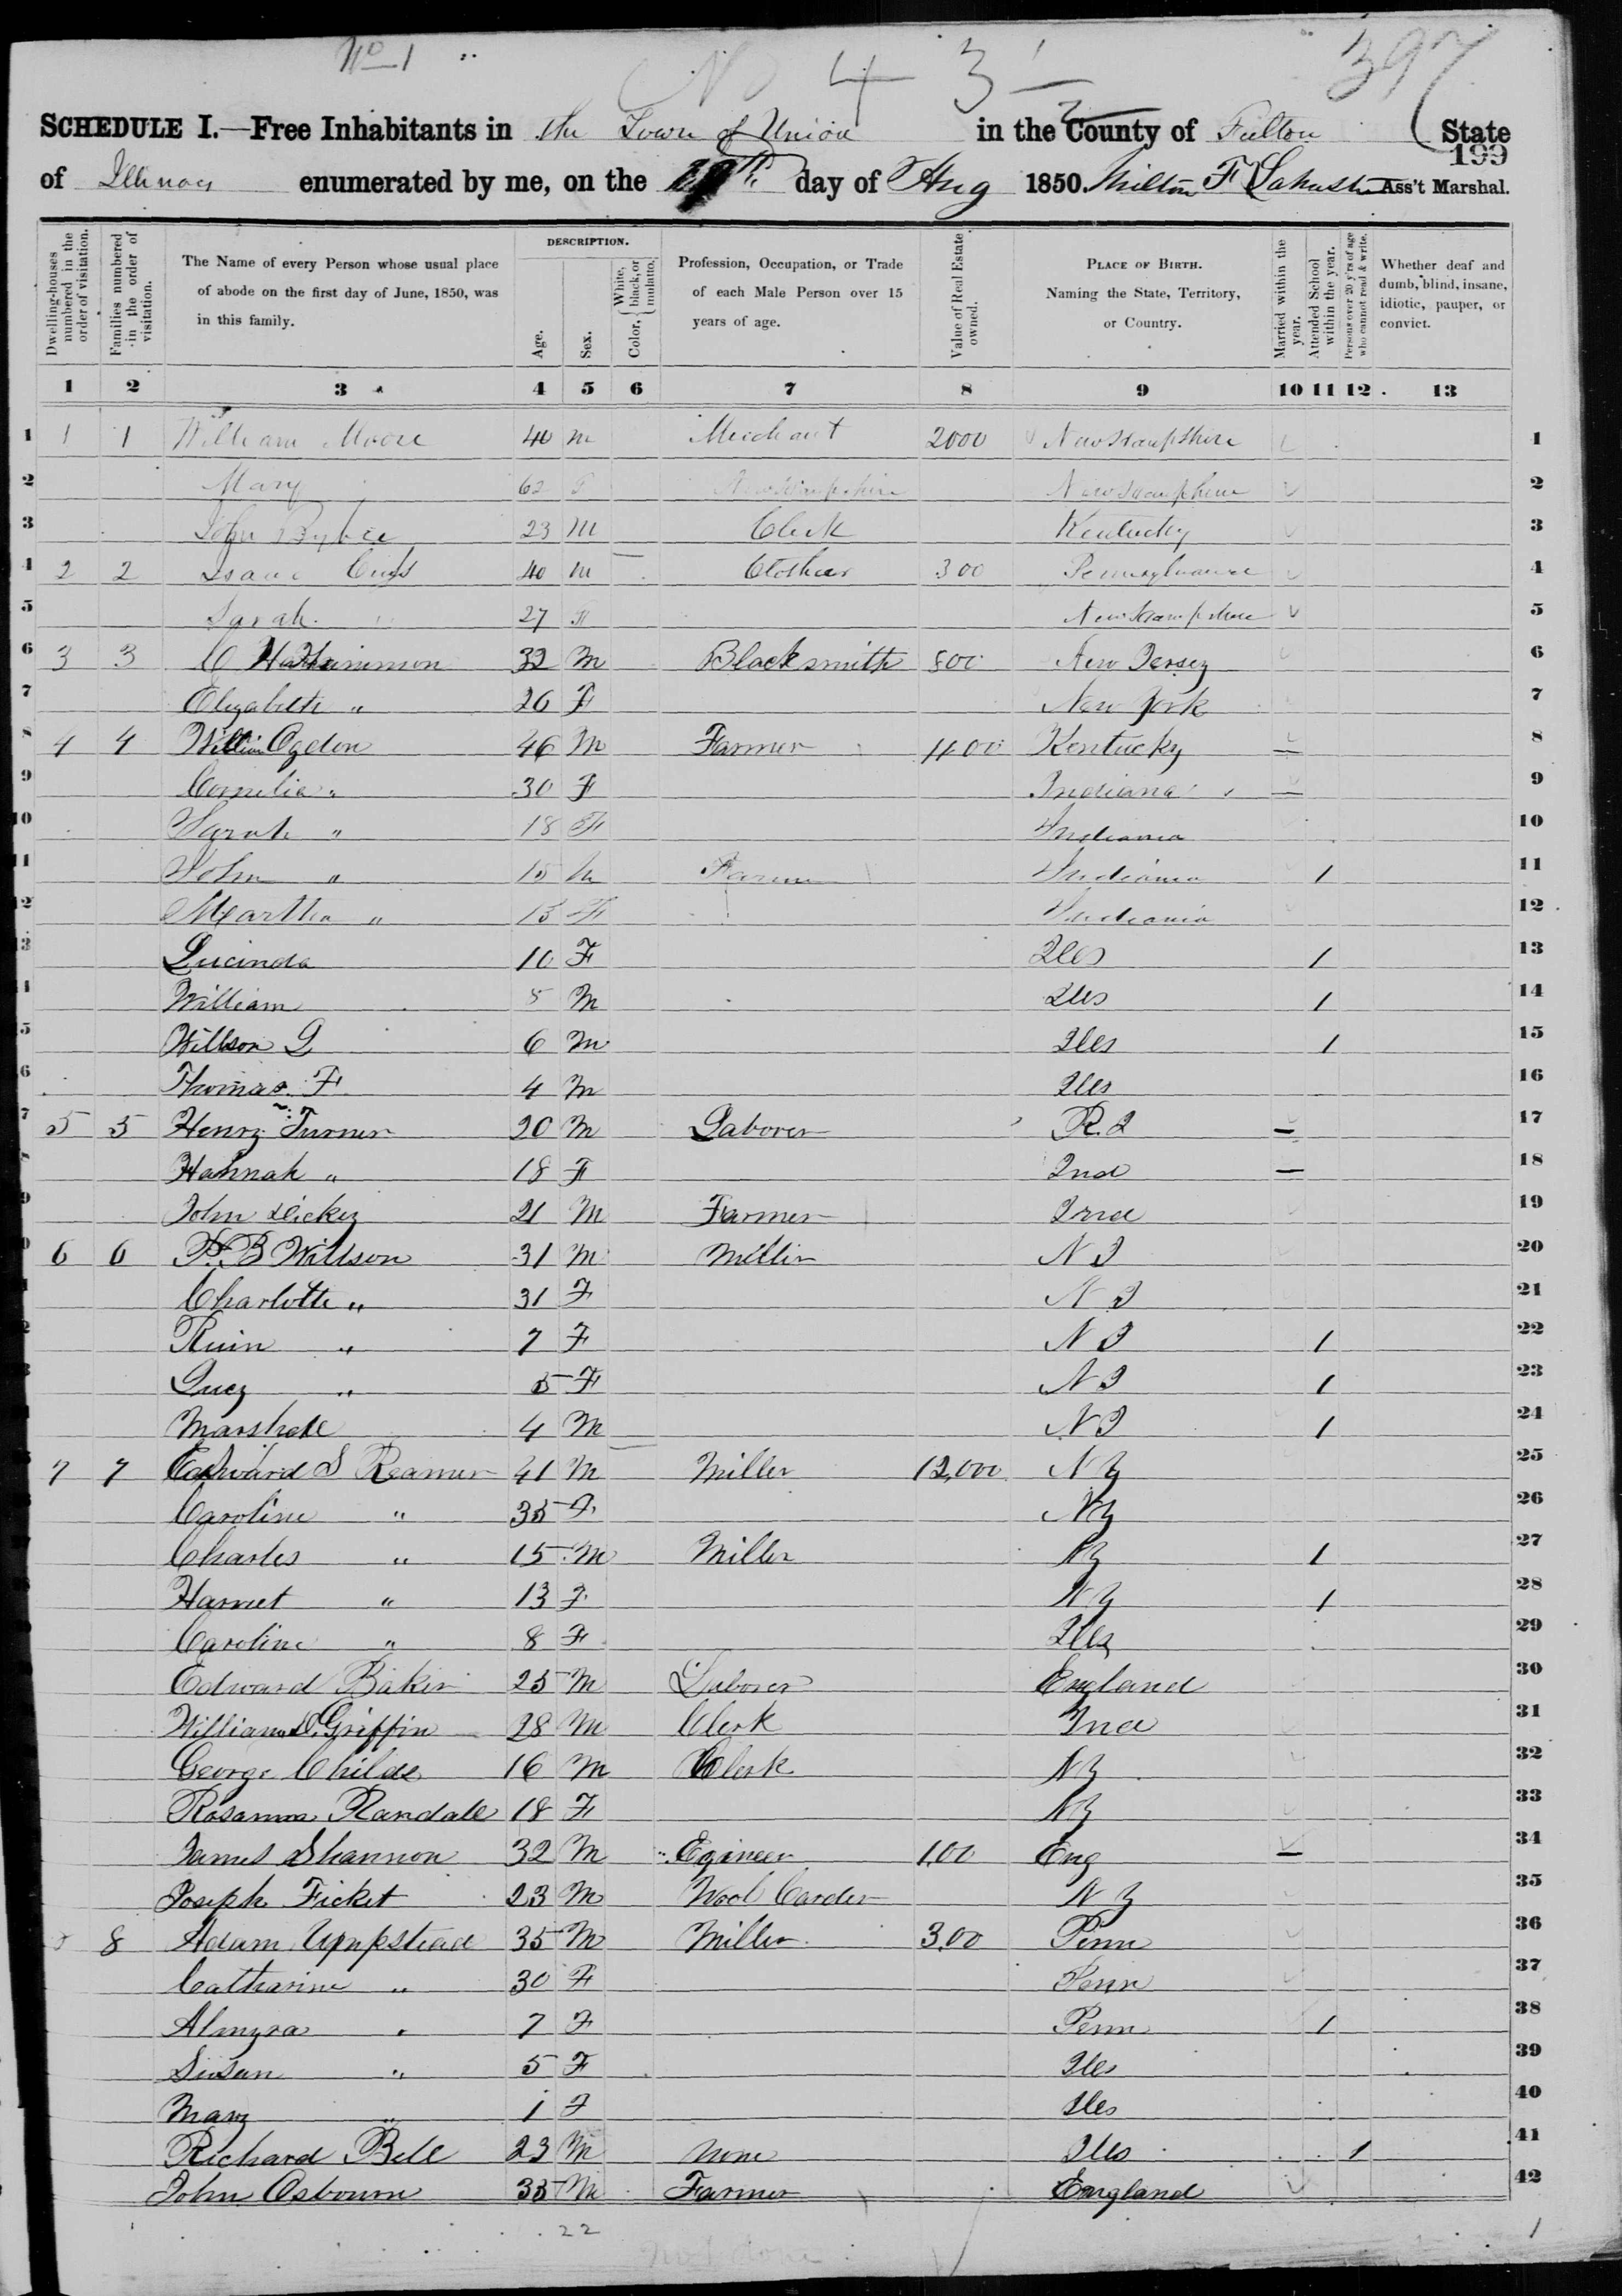 No 1
No 4 3 1
397
SCHEDULE I.—Free Inhabitants in the Town of Union in the County of Fulton State
199
of Illinois enumerated by me, on the day of Aug 1850. Milton F Ass't Marshal.
Dwelling-houses numbered in the order of visitation.
Families numbered in the order of visitation.
The Name of every Person whose usual place of abode on the first day of June, 1850, was in this family.
DESCRIPTION.
Age.
Sex.
Color, { White, black, or mulatto.
Profession, Occupation, or Trade of each Male Person over 15 years of age.
Value of Real Estate owned.
PLACE OF BIRTH. Naming the State, Territory, or Country.
Married within the year.
Attended School within the year.
Persons over 20 y'rs of age who cannot read & write.
Whether deaf and dumb, blind, insane, idiotic, pauper, or convict.
1 2 3 4 5 6 7 8 9 10 11 12 13
1 1 1 William Moore 40 m Merchant 2000 New Hampshire 1
2 Mary 62 F New Hampshire New Hampshire 2
3 John 23 M Clerk Kentucky 3
4 2 2 Isaac 40 M Clothier 300 Pennsylvania 4
5 Sarah 27 F New Hampshire 5
6 3 3 C 32 M Blacksmith 800 New Jersey 6
7 Elizabeth " 26 F New York 7
8 4 4 William Ogden 46 M Farmer 400 Kentucky — 8
9 Cornelia " 30 F Indiana — 9
10 Sarah " 18 F Indiana 10
11 John " 15 M Farmer Indiana 1 11
12 Martha " 13 F Indiana 12
13 Lucinda 10 F Ills 1 13
14 William 8 M Ills 1 14
15 Willson L 6 M Ills 1 15
16 Thomas F 4 M Ills 16
17 5 5 Henry Turner 20 M Laborer R.I — 17
18 Hannah " 18 F Ind — 18
19 John Dickey 21 M Farmer Ind 19
20 6 6 P. B Willson 31 M Miller N J 20
21 Charlotte " 31 F N J 21
22 Ruin " 7 F N J 1 22
23 Lucy " 5 F N J 1 23
24 Marshall 4 M N J 1 24
25 7 7 Edward S Reamer 41 M Miller 12,000 N Y 25
26 Caroline " 35 F N Y 26
27 Charles " 15 M Miller N Y 1 27
28 Harriet " 13 F N Y 1 28
29 Caroline " 8 F Ills 29
30 Edward Baker 25 M Laborer England 30
31 William D. Griffin 28 M Clerk Ind 31
32 George Childs 16 M Clerk N Y 32
33 Rosanna Randall 18 F N Y 33
34 James Shannon 32 M Egineer 1,00 Eng — 34
35 Joseph Ficket 23 M Wool Carder N Y 35
36 8 Adam Umpstead 35 M Miller 3,00 Penn 36
37 Catharine " 30 F Penn 37
38 Almyra " 7 F Penn 1 38
39 Susan " 5 F Ills 39
40 Mary " 1 F Ills 40
41 Richard Bell 23 M None Ills 1 41
42 John Osbourn 35 M Farmer England 42
22
1